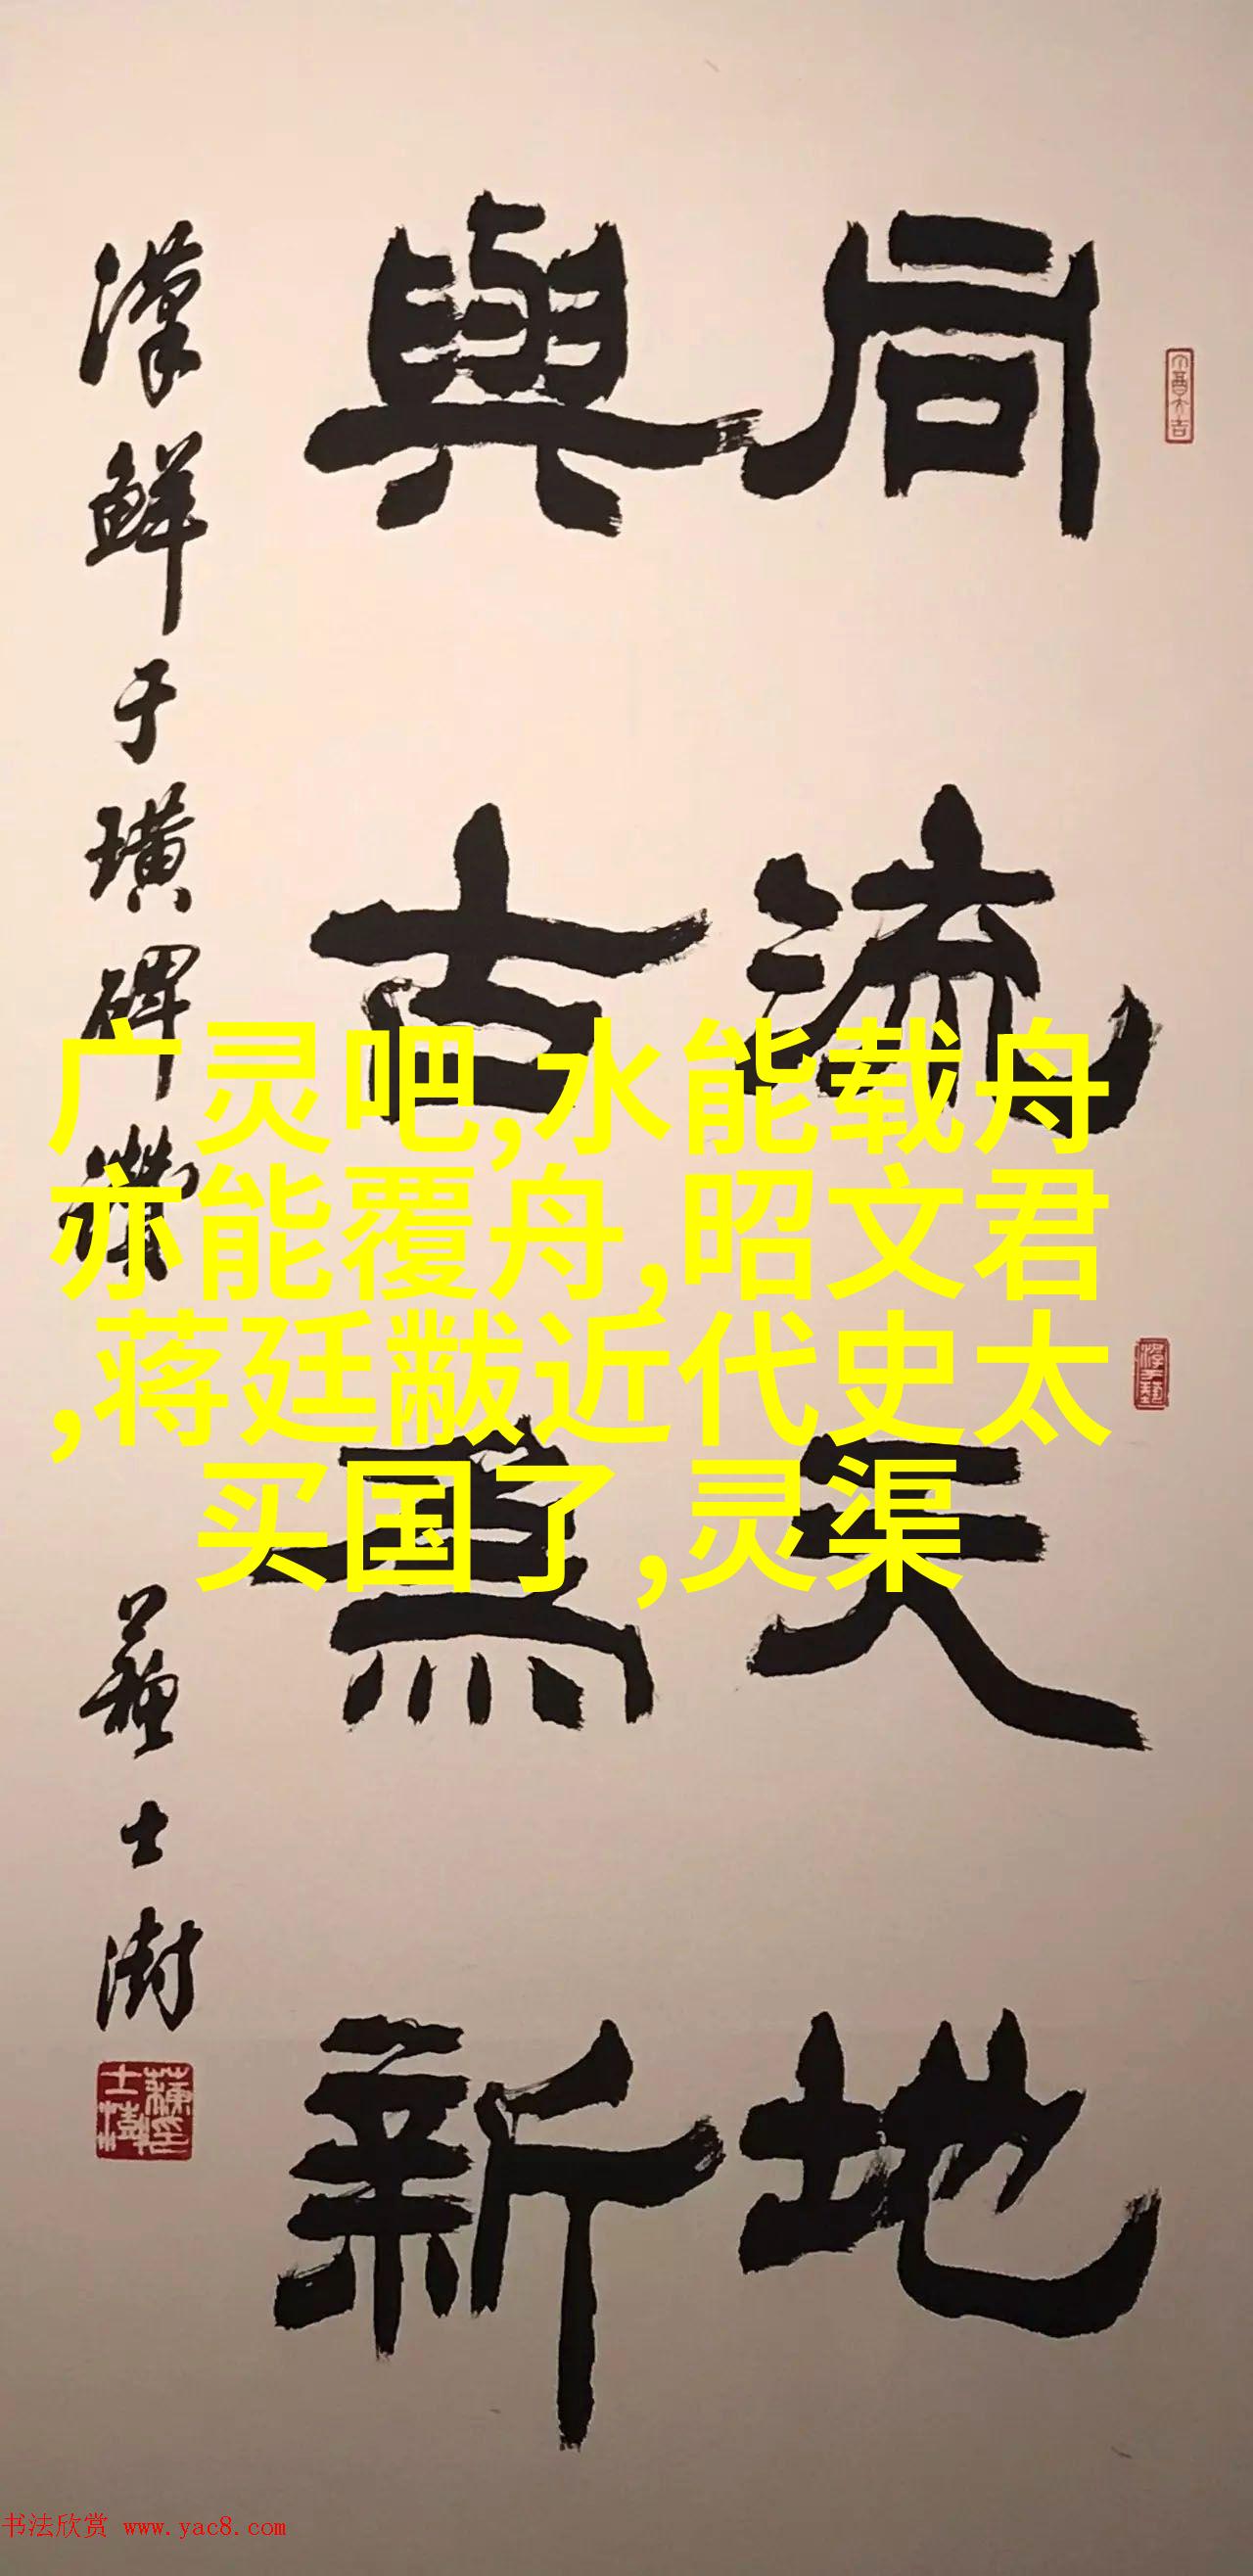 同流天地
與古為新
漢鮮于璜碑
蘇士澍
广灵吧,水能载舟
亦能覆舟,昭文君
,蒋廷黻近代史太
买国了,灵渠
书法欣赏 www.yac8.com